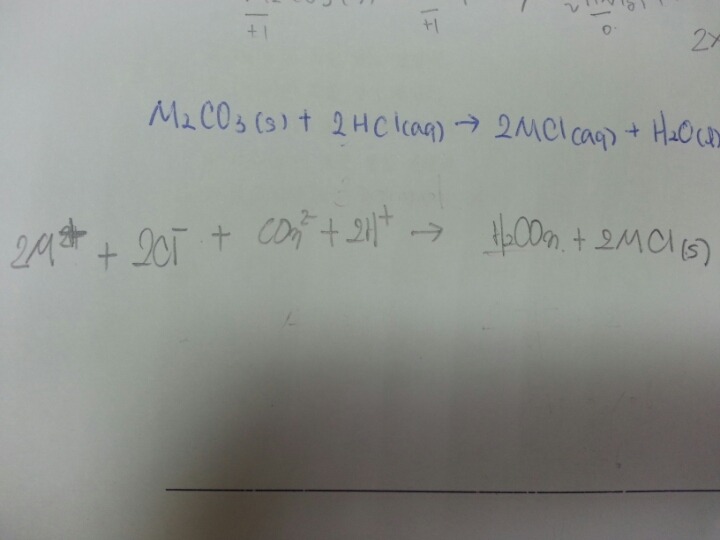 +1 +1 0
2x
M₂CO₃(s) + 2HCl(aq) → 2MCl(aq) + H₂O(l)
2M⁺ + 2Cl⁻ + CO₃²⁻ + 2H⁺ → H₂CO₃ + 2MCl(s)